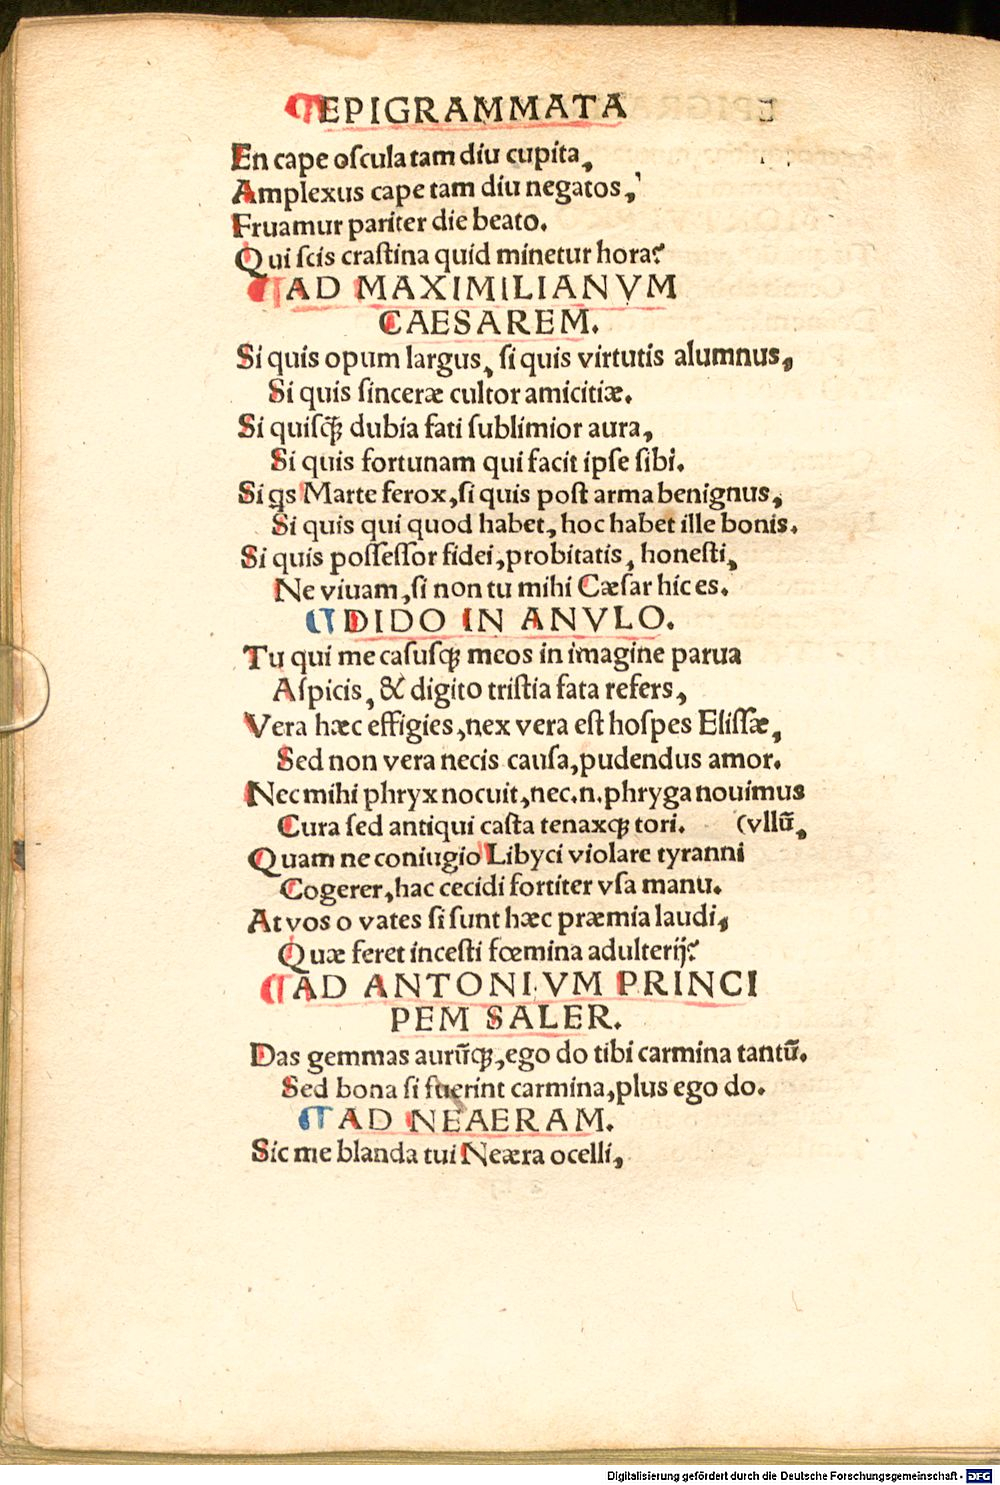 ¶EPIGRAMMATA
En cape oſcula tam diu cupita,
Amplexus cape tam diu negatos,
Fruamur pariter die beato.
Qui ſcis craſtina quid minetur hora?
¶AD MAXIMILIANVM
CAESAREM.
Si quis opum largus, ſi quis virtutis alumnus,
Si quis ſinceræ cultor amicitiæ.
Si quiſꝗ̃ dubia fati ſublimior aura,
Si quis fortunam qui facit ipſe ſibi.
Si qs Marte ferox, ſi quis poſt arma benignus,
Si quis qui quod habet, hoc habet ille bonis.
Si quis poſſeſſor fidei, probitatis, honeſti,
Ne viuam, ſi non tu mihi Cæſar hic es.
¶DIDO IN ANVLO.
Tu qui me caſuſqꝫ meos in imagine parua
Aſpicis, & digito triſtia fata refers,
Vera hæc effigies, nex vera eſt hoſpes Eliſſæ,
Sed non vera necis cauſa, pudendus amor.
Nec mihi phryx nocuit, nec.n. phryga nouimus
Cura ſed antiqui caſta tenaxqꝫ tori. (vllũ,
Quam ne coniugio Libyci violare tyranni
Cogerer, hac cecidi fortiter vſa manu.
At vos o vates ſi ſunt hæc præmia laudi,
Quæ feret inceſti fœmina adulterij?
¶AD ANTONIVM PRINCI
PEM SALER.
Das gemmas aurũqꝫ, ego do tibi carmina tantũ.
Sed bona ſi fuerint carmina, plus ego do.
¶AD NEAERAM.
Sic me blanda tui Neæra ocelli,
Digitalisierung gefördert durch die Deutsche Forschungsgemeinschaft - DFG